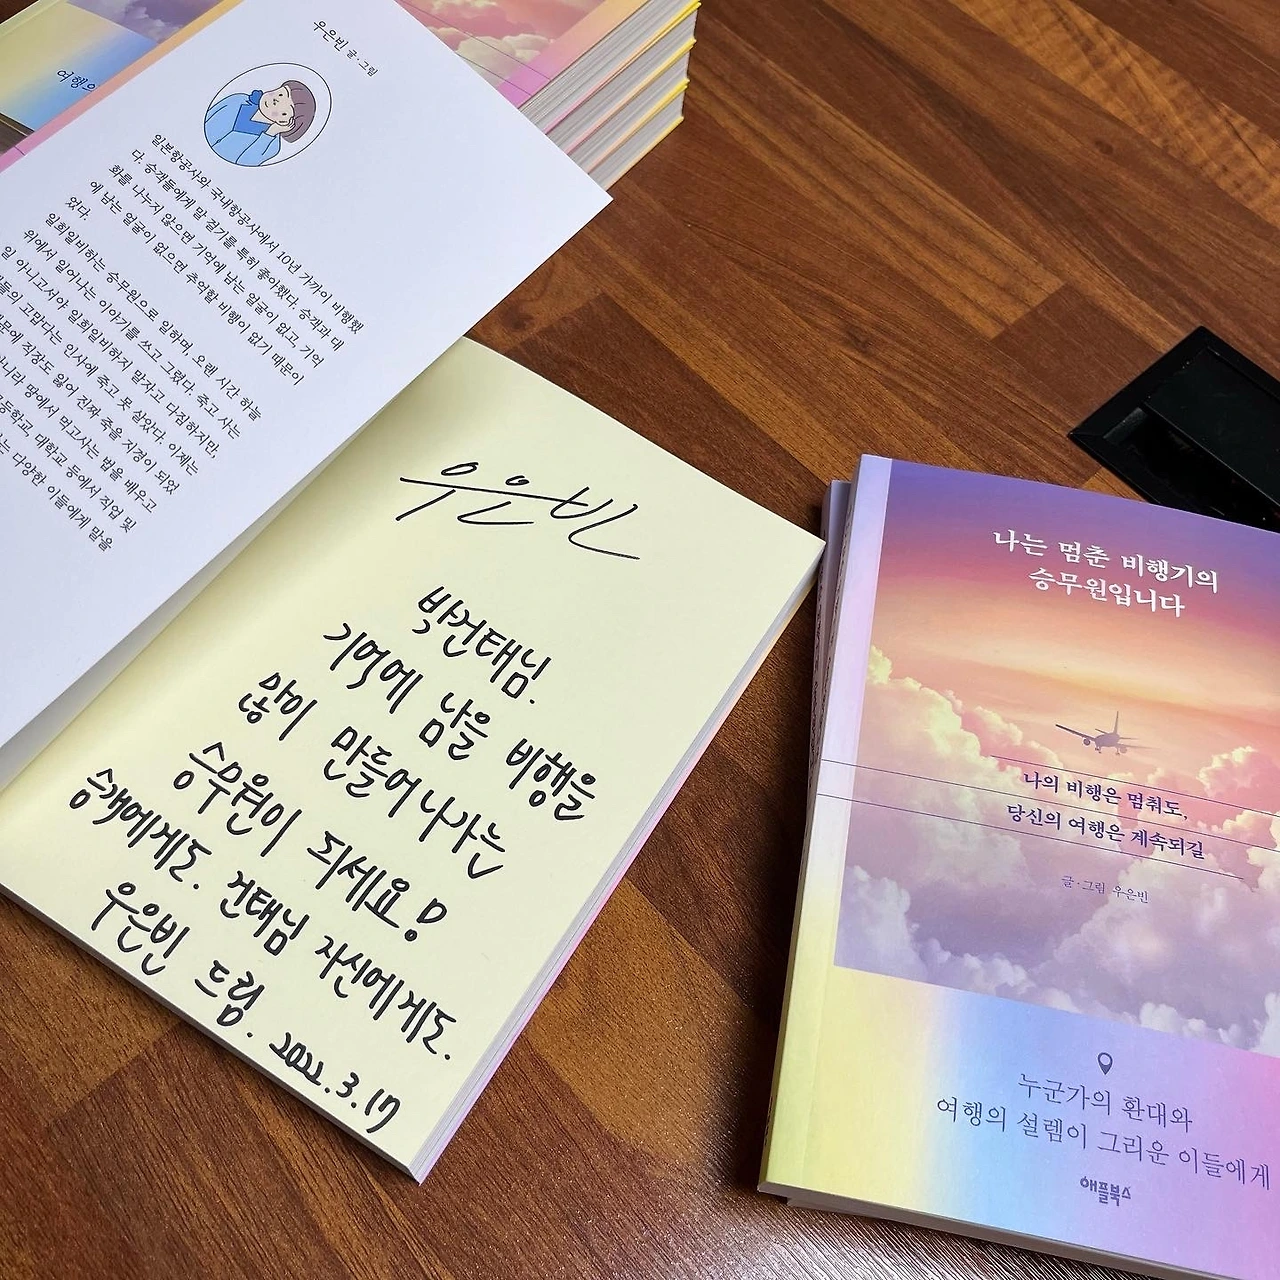 여행의
우은빈 글·그림
일본항공사와 국내항공사에서 10년 가까이 비행했
다. 승객들에게 말 걸기를 특히 좋아했다. 승객과 대
화를 나누지 않으면 기억에 남는 얼굴이 없고, 기억
에 남는 얼굴이 없으면 추억할 비행이 없기 때문이
었다.
일희일비하는 승무원으로 일하며, 오랜 시간 하늘
위에서 일어나는 이야기를 쓰고 그렸다. 죽고 사는
일 아니고서야 일희일비하지 말자고 다짐하지만,
들의 고맙다는 인사에 죽고 못 살았다. 이제는
문에 직장도 잃어 진짜 죽을 지경이 되었
니라 땅에서 먹고사는 법을 배우고
등학교, 대학교 등에서 직업 및
는 다양한 이들에게 말을
우은빈
박건태님.
기억에 남을 비행을
많이 만들어 나가는
승무원이 되세요!
승객에게도. 건태님 자신에게도.
우은빈 드림. 2022. 3. 17
나는 멈춘 비행기의
승무원입니다
나의 비행은 멈춰도,
당신의 여행은 계속되길
글·그림 우은빈
누군가의 환대와
여행의 설렘이 그리운 이들에게
애플북스